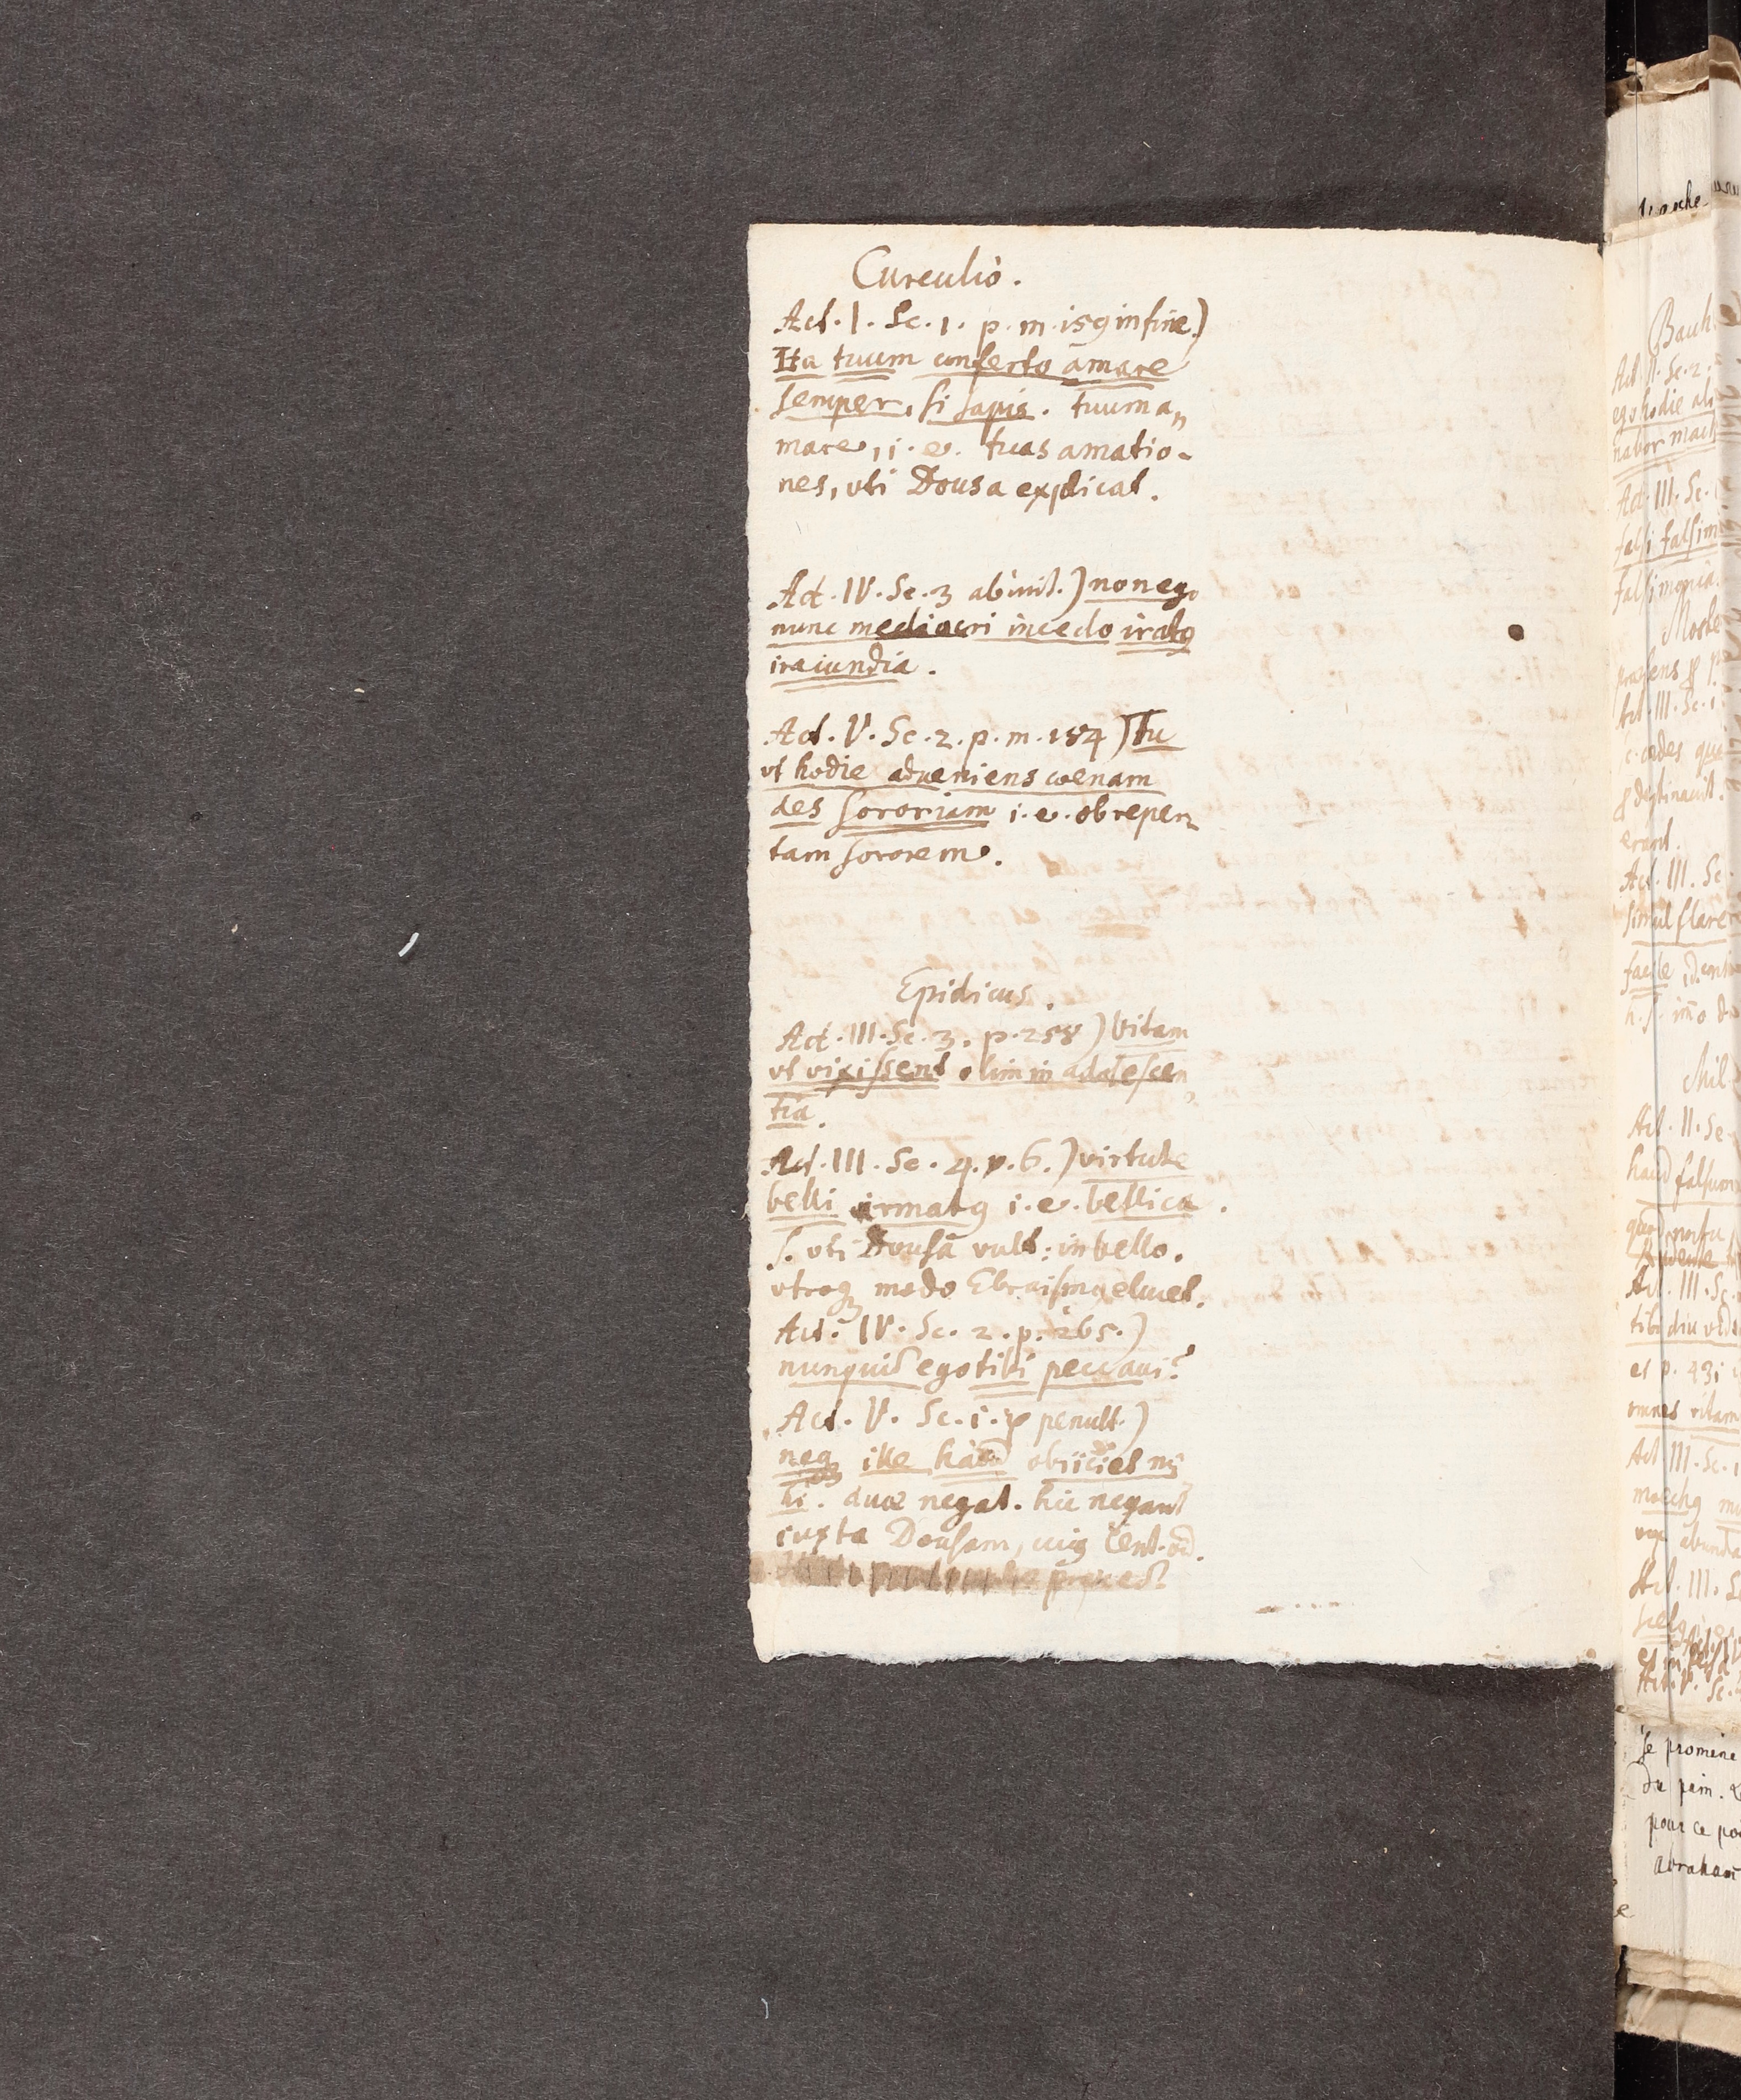 Curculio.
Act. I. Sc. 1. p. m. 159 in fine.)
Ita tuum conferto amare
semper, si sapis. tuum a„
mare, i. e. tuas amatio-
nes, uti Dousa explicat.
Act. IV. Sc. 3 ab init.) non ego
nunc mediocri incedo iratꝯ
iracundia.
Act. V. Sc. 2. p. m. 184) Tu
ut hodie adveniens coenam
des sororiam i. e. ob reper„
tam sororem.
Epidicus.
Act. III. Sc. 3. p. 258) Vitam
ut vixissent olim in adolescen„
tia.
Act. III. Sc. 4. v. 6.) virtute
belli armatꝯ i. e. bellica.
s. uti Dousa vult: in bello.
utroqꝫ modo Ebraismꝯ elucet.
Act. IV. Sc. 2. p. 265.)
nunquid ego tibi peccavi?
Act. V. Sc. 1. v penult.)
neqꝫ ille haud obiiciet mi
hi. duae negat. hic negant
iuxta Dousam, cuiꝯ Cent. vid.
Bach.
Act. II. Sc. 2.
ego hodie
nabor mach
Act. III. Sc.
falsi falsim
falsimonia.
Moste
Act. III. Sc. 1
destinavit.
erant.
Act. III. Sc.
simul flare
facile
Mil
Act. II. Sc.
haud falsum
Act. III. Sc.
tibi diu
et p. 431
omnes vitam
Act III. Sc. 1
moechꝯ
Act. III. S
Act. V. Sc.
se promene
du pein.
pour ce
abraham